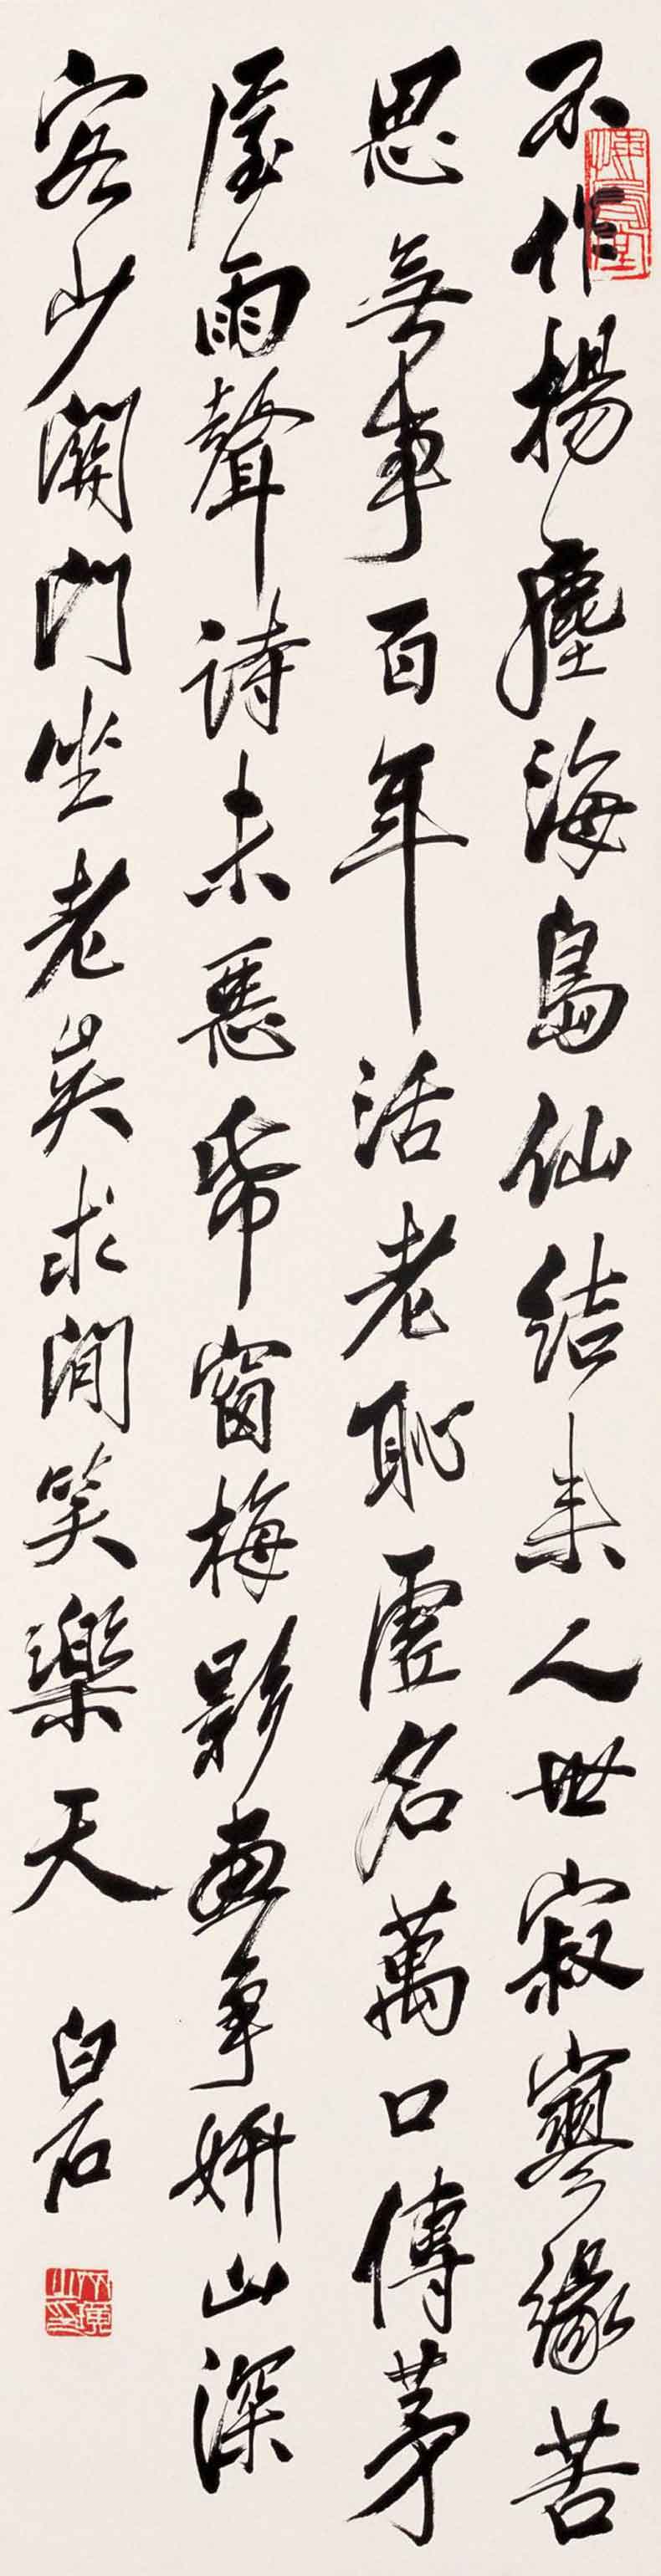 悔烏堂
不作揚塵海島仙結來人世寂寥緣苦
思無事百年活老恥虛名萬口傳茅
屋雨聲詩未惡帋窗梅影畫爭妍山深
客少關門坐老矣求閒笑樂天
白石
齊璜之印